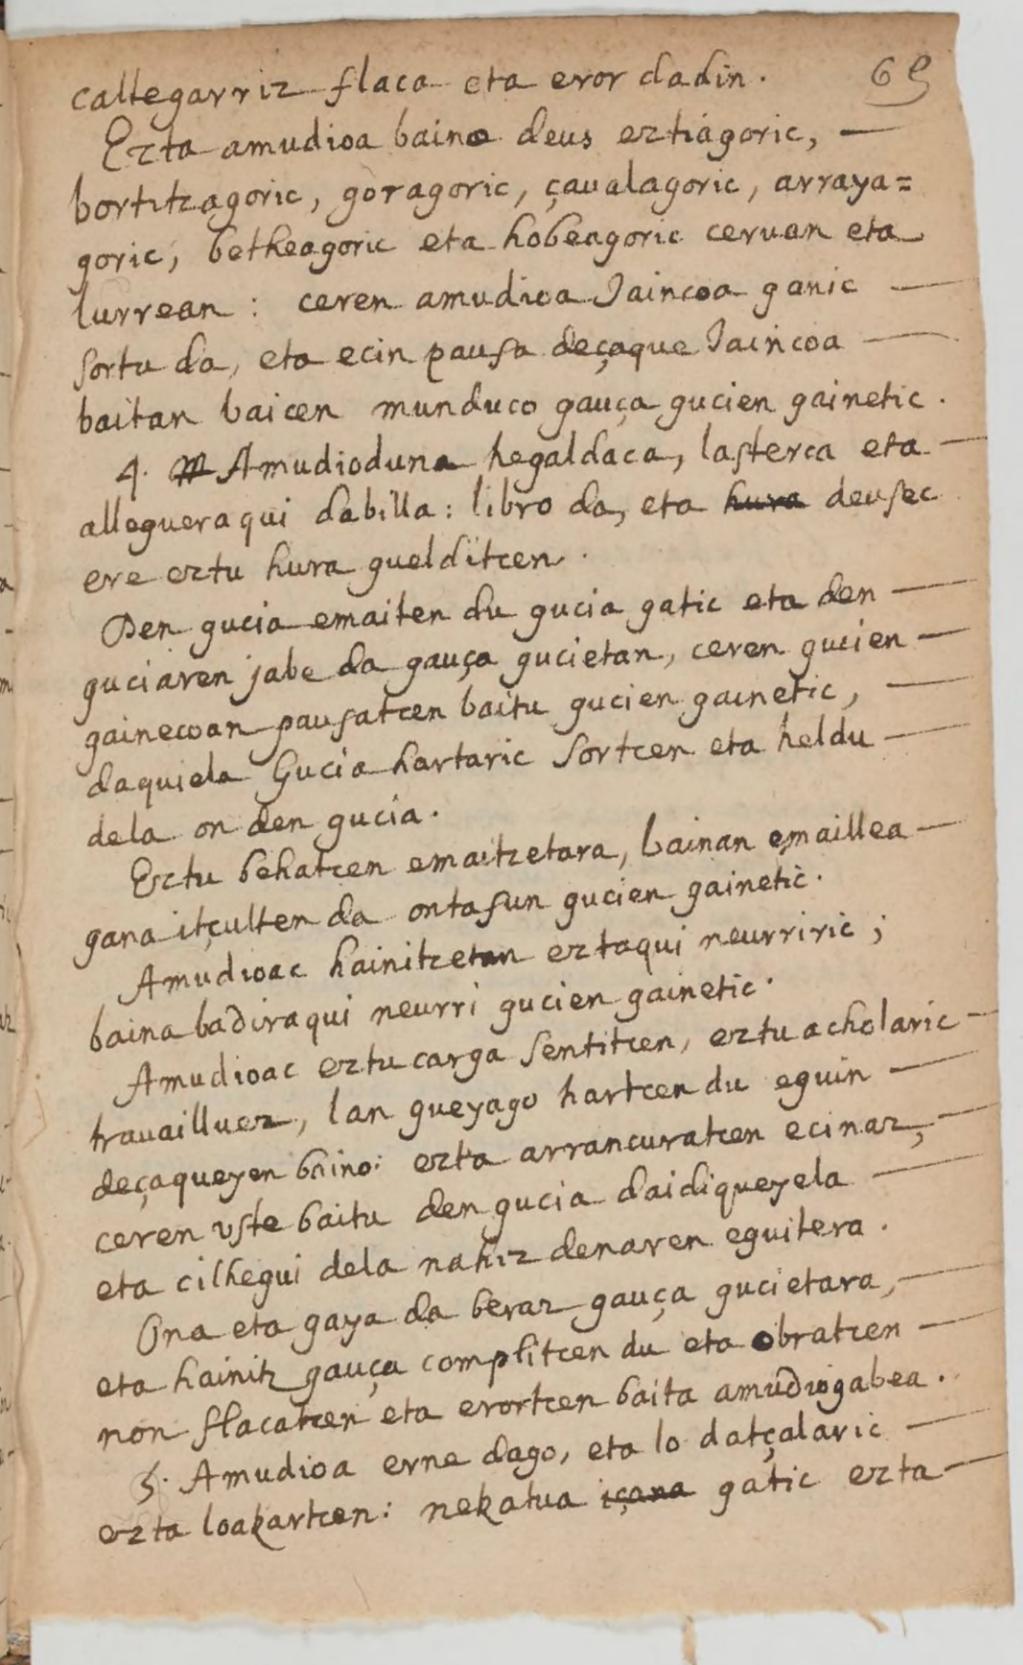 69
caltegarriz flaca eta eror dadin.
Ezta amudioa baino deus eztiagoric, —
bortitzagoric, goragoric, çaualagoric, arraya=
goric, betheagoric eta hobeagoric ceruan eta
lurrean : ceren amudioa Jaincoa ganic —
sortu da, eta ecin pausa deçaque Jaincoa —
baitan baicen munduco gauça gucien gainetic.
4. Amudioduna hegaldaca, lasterca eta —
allegueraqui dabilla : libro da, eta hura deusec
ere eztu hura guelditcen.
Den gucia emaiten du gucia gatic eta den —
guciaren jabe da gauça gucietan, ceren gucien —
gainecoan pausatcen baitu gucien gainetic, —
daquiela Gucia hartaric sortcen eta heldu —
dela on den gucia.
Eztu behatcen emaitzetara, bainan emaillea —
gana itçulten da ontasun gucien gainetic.
Amudioac hainitzetan eztaqui neurriric ;
baina badiraqui neurri gucien gainetic.
Amudioac eztu carga sentitcen, eztu acholaric —
trauailluez, lan gueyago hartcen du eguin —
deçaqueyen baino : ezta arrancuratcen ecinaz, —
ceren uste baitu den gucia daidiqueyela —
eta cilhegui dela nahiz denaren eguitera.
Ona eta gaya da beraz gauça gucietara, —
eta hainitz gauça complitcen du eta obratcen —
non flacatcen eta erortcen baita amudiogabea.
5. Amudioa erne dago, eta lo datçalaric —
ezta loakartcen : nekatua içana gatic ezta —